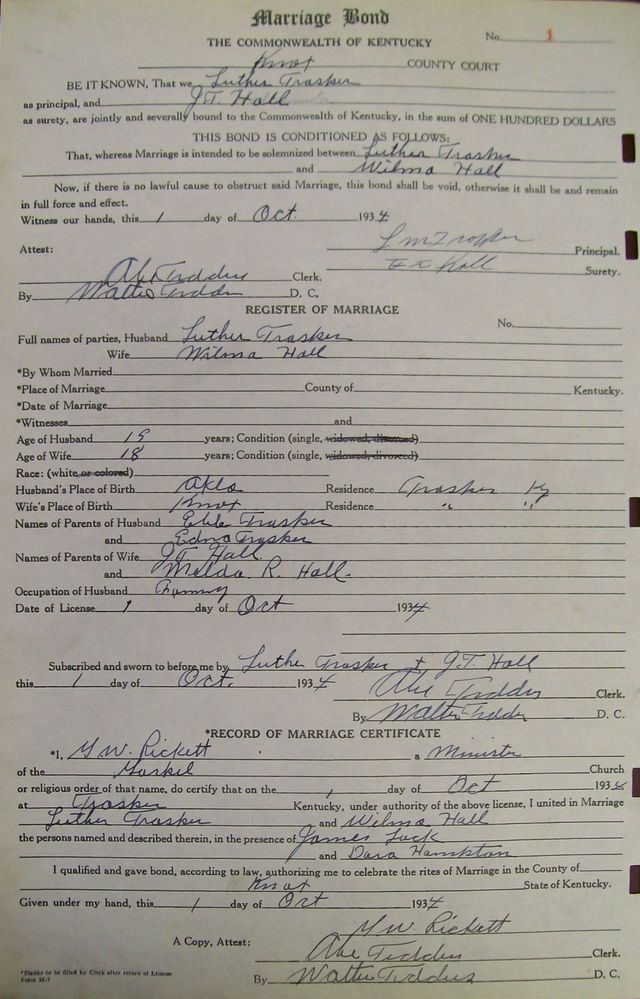 Marriage Bond
THE COMMONWEALTH OF KENTUCKY No. 1
Knox COUNTY COURT
BE IT KNOWN, That we Luther Trosker
as principal, and J.T. Hall
as surety, are jointly and severally bound to the Commonwealth of Kentucky, in the sum of ONE HUNDRED DOLLARS
THIS BOND IS CONDITIONED AS FOLLOWS:
That, whereas Marriage is intended to be solemnized between Luther Trosker
and Wilma Hall
Now, if there is no lawful cause to obstruct said Marriage, this bond shall be void, otherwise it shall be and remain
in full force and effect.
Witness our hands, this 1 day of Oct 1934
Principal.
Attest: Hall Surety.
Clerk.
By D. C.
REGISTER OF MARRIAGE
No.
Full names of parties, Husband Luther Trosker
Wife Wilma Hall
*By Whom Married
*Place of Marriage County of Kentucky.
*Date of Marriage
*Witnesses and
Age of Husband 19 years; Condition (single, widowed, divorced)
Age of Wife 18 years; Condition (single, widowed, divorced)
Race: (white or colored)
Husband's Place of Birth Okla Residence Trosker Ky
Wife's Place of Birth Knox Residence " "
Names of Parents of Husband Trosker
and Edna Trosker
Names of Parents of Wife J.T. Hall
and Melda R. Hall.
Occupation of Husband
Date of License 1 day of Oct 1934
Subscribed and sworn to before me by Luther Trosker + J.T. Hall
this 1 day of Oct. 1934
Clerk.
By D. C.
*RECORD OF MARRIAGE CERTIFICATE
*I, G W. Rickett a Minister
of the Church
or religious order of that name, do certify that on the 1 day of Oct 1934
at Trosker Kentucky, under authority of the above license, I united in Marriage
Luther Trosker and Wilma Hall
the persons named and described therein, in the presence of James
and Hampton
I qualified and gave bond, according to law, authorizing me to celebrate the rites of Marriage in the County of
Knox State of Kentucky.
Given under my hand, this 1 day of Oct 1934
G W. Rickett
A Copy, Attest: Clerk.
By D. C.
*Blanks to be filled by Clerk after return of License
Form M-7